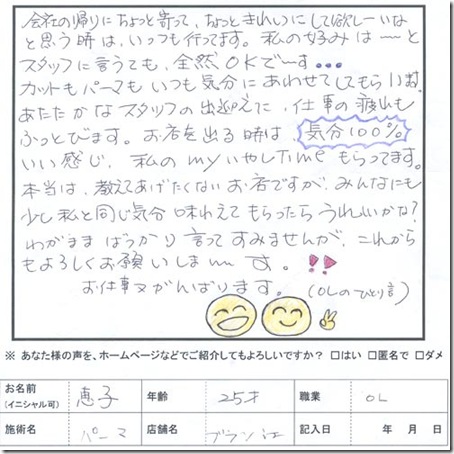 会社の帰りにちょっと寄って、ちょっときれいにして欲しーいな
と思う時は、いっつも行ってます。私の好みは〜と
スタッフに言うても、全然OKで〜す...
カットもパーマもいつも気分にあわせてしてもらいます。
あたたかなスタッフの出迎えに、仕事の疲れも
ふっとびます。お店を出る時は 気分100%
いい感じ、私のmyいやしTimeもらってます。
本当は、教えてあげたくないお店ですが、みんなにも
少し私と同じ気分味わえてもらったらうれしいかな?
わがままばっかり言ってすみませんが、これから
もよろしくお願いしま〜す。!!
お仕事又がんばります。(OLのひとり言)
※ あなた様の声を、ホームページなどでご紹介してもよろしいですか? □はい □匿名で □ダメ
お名前(イニシャル可) 恵子 年齢 25才 職業 OL
施術名 パーマ 店舗名 ブラン 記入日 年 月 日